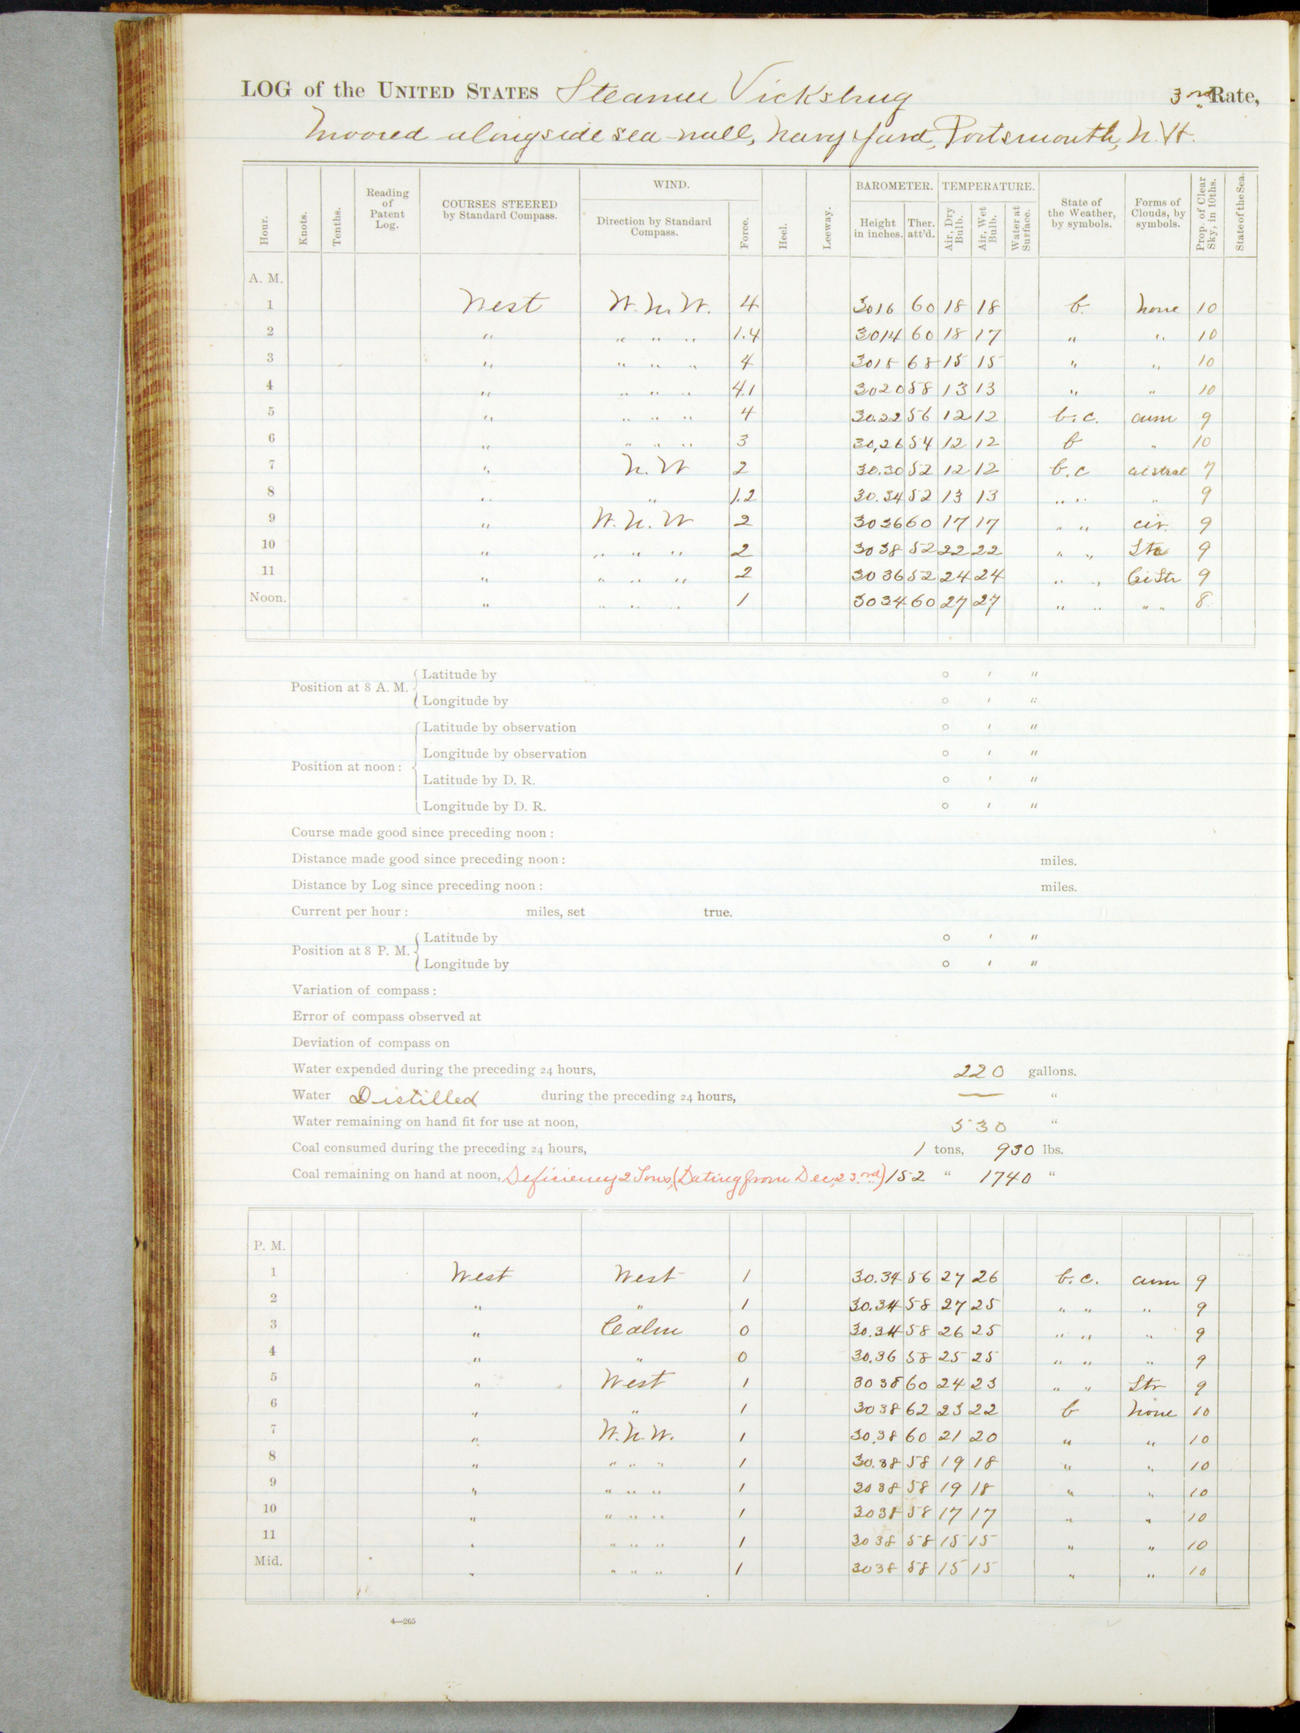 LOG of the UNITED STATES Steamer Vicksburg 3rd Rate,
Moored alongside sea-wall, Navy Yard, Portsmouth, N.H.
Hour. Knots. Tenths. Reading of Patent Log. COURSES STEERED by Standard Compass. WIND. Direction by Standard Compass. Force. Heel. Leeway. BAROMETER. Height in inches. Ther. att'd. TEMPERATURE. Air, Dry Bulb. Air, Wet Bulb. Water at Surface. State of the Weather, by symbols. Forms of Clouds, by symbols. Prop. of Clear Sky, in 10ths. State of the Sea.
A. M.
1 West W.N.W. 4 3016 60 18 18 b. none 10
2 " " " " 1.4 3014 60 18 17 " " 10
3 " " " " 4 3018 68 15 15 " " 10
4 " " " " 4.1 3020 58 13 13 " " 10
5 " " " " 4 30.22 56 12 12 b.c. cum 9
6 " " " " 3 30,26 54 12 12 b " 10
7 " N.W 2 30.30 52 12 12 b.c 7
8 " " 1.2 30.34 52 13 13 " " " 9
9 " W.N.W 2 3036 60 17 17 " " cir. 9
10 " " " " 2 3038 52 22 22 " " Str 9
11 " " " " 2 3036 52 24 24 " " CiStr 9
Noon. " " " " 1 3034 60 27 27 " " " " 8
Position at 8 A. M. Latitude by ° ' "
Longitude by ° ' "
Position at noon: Latitude by observation ° ' "
Longitude by observation ° ' "
Latitude by D. R. ° ' "
Longitude by D. R. ° ' "
Course made good since preceding noon:
Distance made good since preceding noon: miles.
Distance by Log since preceding noon: miles.
Current per hour: miles, set true.
Position at 8 P. M. Latitude by ° ' "
Longitude by ° ' "
Variation of compass:
Error of compass observed at
Deviation of compass on
Water expended during the preceding 24 hours, 220 gallons.
Water Distilled during the preceding 24 hours, — "
Water remaining on hand fit for use at noon, 530 "
Coal consumed during the preceding 24 hours, 1 tons, 930 lbs.
Coal remaining on hand at noon, Deficiency 2 Tons, (Dating from Dec, 23rd) 152 " 1740 "
P. M.
1 West West 1 30.34 56 27 26 b.c. cum 9
2 " " 1 30.34 58 27 25 " " " 9
3 " Calm 0 30.34 58 26 25 " " " 9
4 " " 0 30.36 58 25 25 " " " 9
5 " West 1 3038 60 24 23 " " Str 9
6 " " 1 3038 62 23 22 b none 10
7 " W.N.W. 1 30.38 60 21 20 " " 10
8 " " " " 1 30.38 58 19 18 " " 10
9 " " " " 1 3038 58 19 18 " " 10
10 " " " " 1 3038 58 17 17 " " 10
11 " " " " 1 3038 58 15 15 " " 10
Mid. " " " " 1 3038 58 15 15 " " 10
4—265